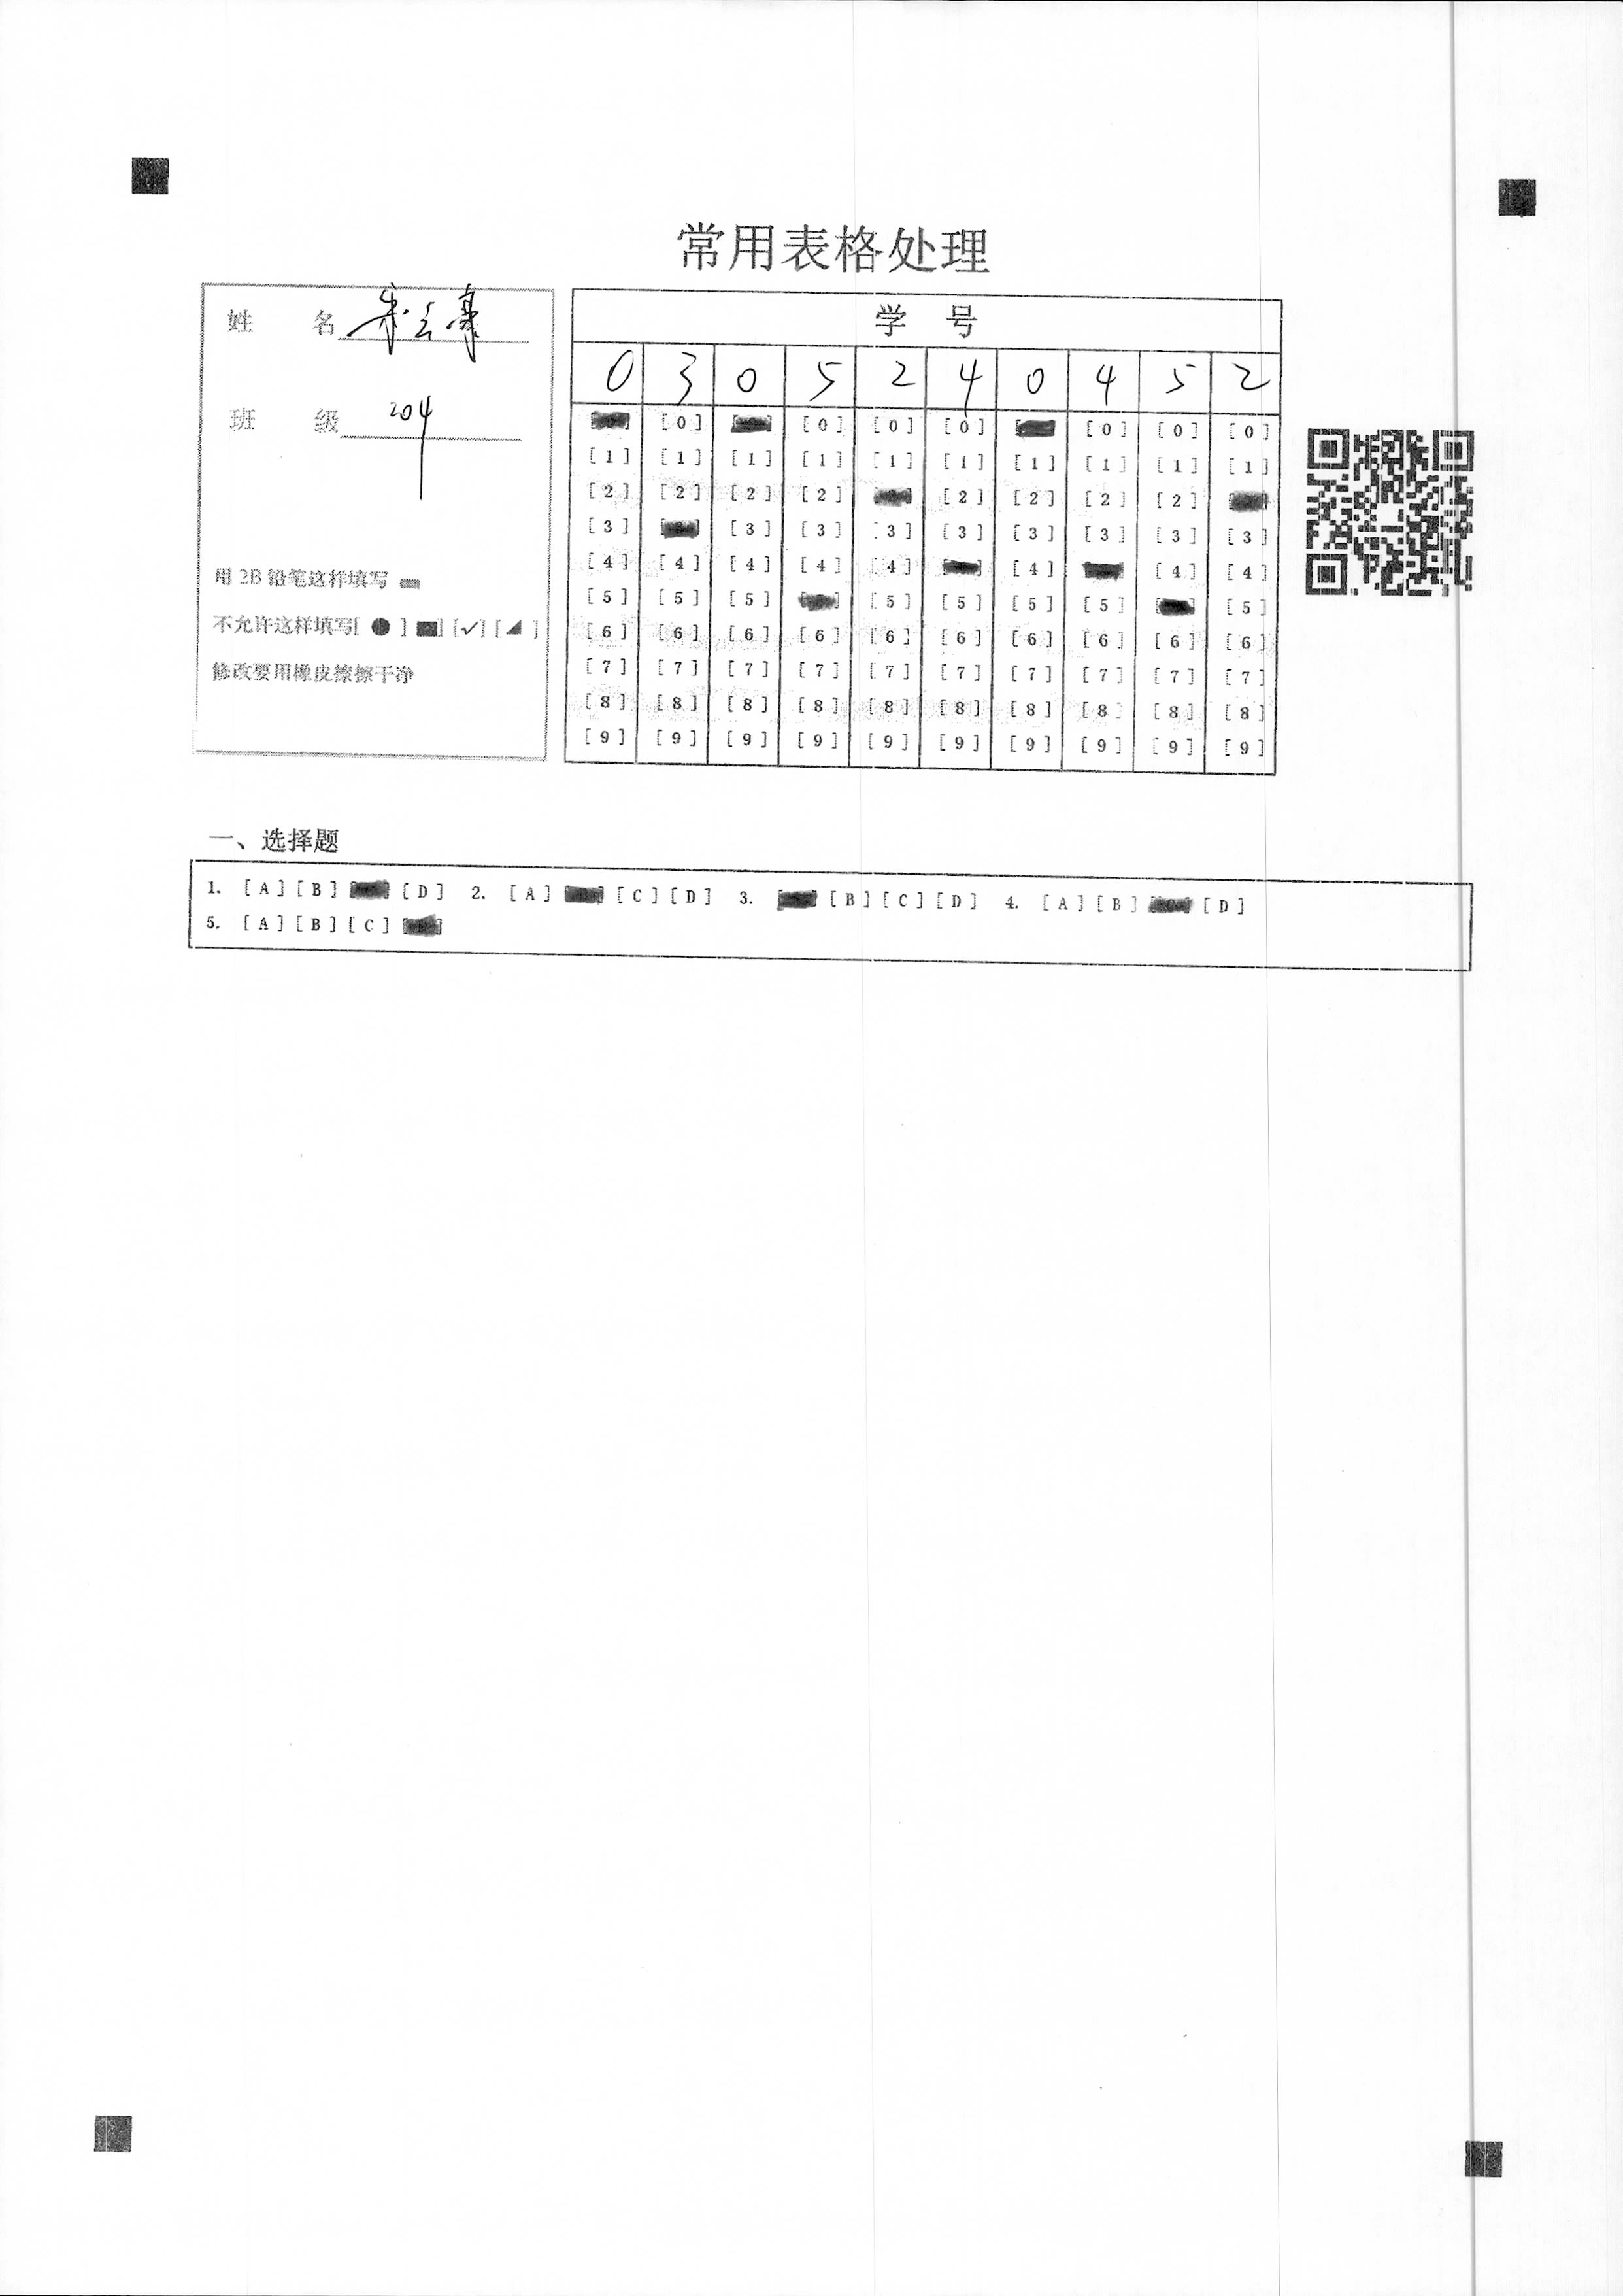 常用表格处理
姓 名
班 级 204
用 2B 铅笔这样填写
不允许这样填写[ ● ] [✓] [◢ ]
修改要用橡皮擦擦干净
学 号
0 3 0 5 2 4 0 4 5 2
[0] [0] [0] [0] [0] [0] [0]
[1] [1] [1] [1] [1] [1] [1] [1] [1] [1]
[2] [2] [2] [2] [2] [2] [2] [2]
[3] [3] [3] [3] [3] [3] [3] [3] [3]
[4] [4] [4] [4] [4] [4] [4] [4]
[5] [5] [5] [5] [5] [5] [5] [5]
[6] [6] [6] [6] [6] [6] [6] [6] [6] [6]
[7] [7] [7] [7] [7] [7] [7] [7] [7] [7]
[8] [8] [8] [8] [8] [8] [8] [8] [8] [8]
[9] [9] [9] [9] [9] [9] [9] [9] [9] [9]
一、选择题
1. [A] [B] [D] 2. [A] [C] [D] 3. [B] [C] [D] 4. [A] [B] [D]
5. [A] [B] [C]